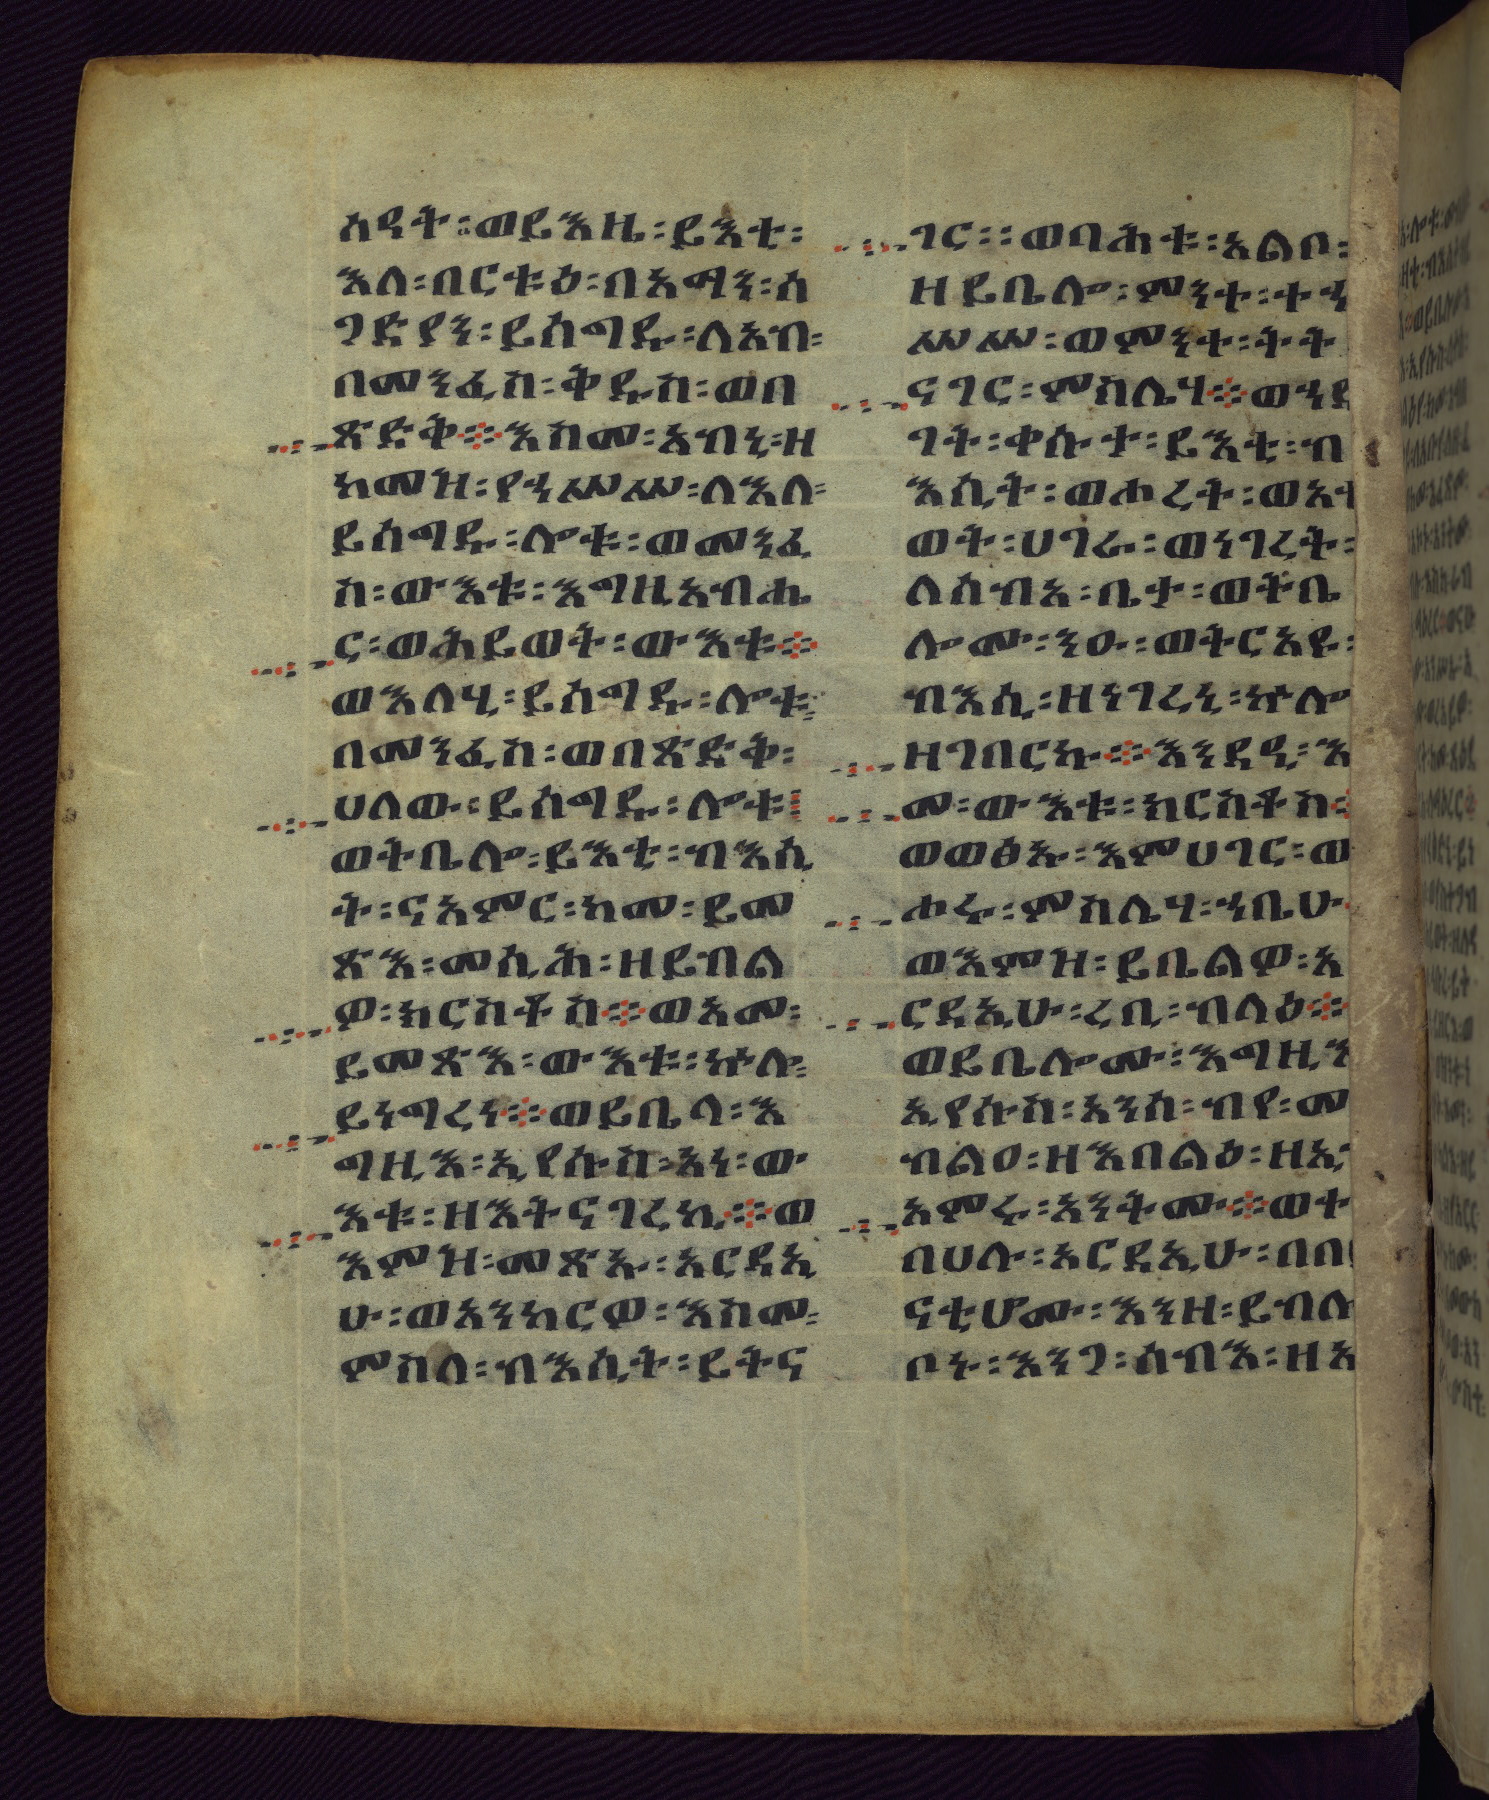 ሰዓት፡ወይእዜ፡ይእቲ፡
እለ፡በርቱዕ፡በአማን፡ሰ
ገድያን፡ይሰግዱ፡ለአብ፡
በመንፈስ፡ቅዱስ፡ወበ
ጽድቅ፨እስመ፡አብኒ፡ዘ
ከመዝ፡የኀሥሥ፡ለእለ፡
ይሰግዱ፡ሎቱ፡ወመንፈ
ስ፡ውእቱ፡እግዚአብሔ
ር፡ወሕይወት፡ውእቱ፨
ወእለሂ፡ይሰግዱ፡ሎቱ፡
በመንፈስ፡ወበጽድቅ፡
ሀለው፡ይሰግዱ፡ሎቱ፡
ወትቤሎ፡ይእቲ፡ብእሲ
ት፡ናአምር፡ከመ፡ይመ
ጽእ፡መሲሕ፡ዘይብል
ዎ፡ክርስቶስ፨ወአመ፡
ይመጽእ፡ውእቱ፡ኵሎ፡
ይነግረነ፨ወይቤላ፡እ
ግዚእ፡ኢየሱስ፡አነ፡ው
እቱ፡ዘእትናገረኪ፨ወ
እምዝ፡መጽኡ፡አርዳኢ
ሁ፡ወአንከርዎ፡እስመ፡
ምስለ፡ብእሲት፡ይትና
ገር፡፡ወባሕቱ፡አልቦ፡
ዘይቤሎ፡ምንተ፡ተኀ
ሥሥ፡ወምንተ፡ትት
ናገር፡ምስሌሃ፨ወኀደ
ገት፡ቀሱተ፡ይእቲ፡ብ
እሲት፡ወሖረት፡ወአተ
ወት፡ሀገራ፡ወነገረት፡
ለሰብአ፡ቤታ፡ወትቤ
ሎሙ፡ንዑ፡ወትርአዩ፡
ብእሲ፡ዘነገረኒ፡ኵሎ
ዘገበርኩ፨እንዳዒ፡እ
መ፡ውእቱ፡ክርስቶስ፨
ወወፅኡ፡እምሀገር፡ወ
ሖሩ፡ምስሌሃ፡ኀቤሁ
ወእምዝ፡ይቤልዎ፡አ
ርዳኢሁ፡ረቢ፡ብላዕ፨
ወይቤሎሙ፡እግዚእ
ኢየሱስ፡አንሰ፡ብየ፡መ
ብልዐ፡ዘእበልዕ፡ዘኢ
አምሩ፡አንትሙ፨ወተ
በሀሉ፡አርዳኢሁ፡በበ
ናቲሆሙ፡እንዘ፡ይብሉ
ቦኑ፡እንጋ፡ሰብእ፡ዘአ